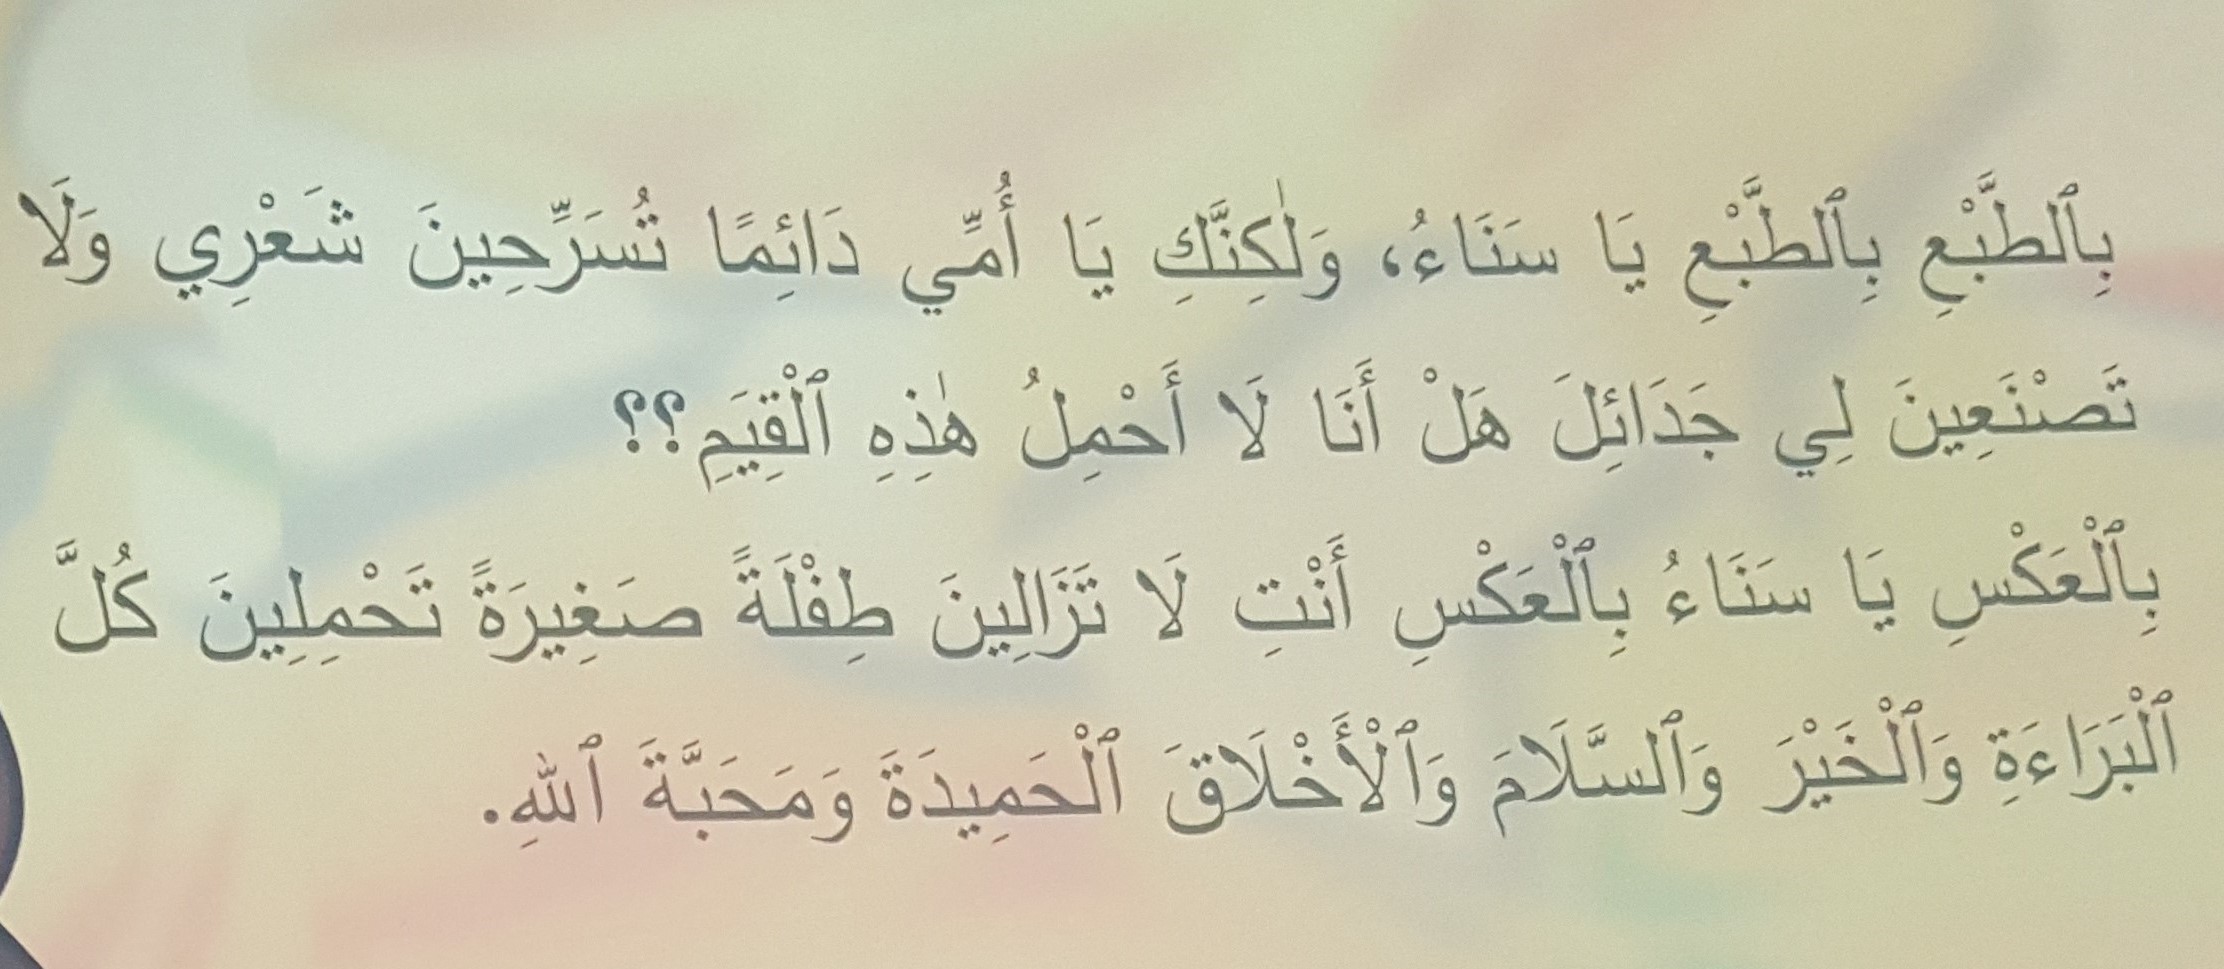 بِٱلطَّبْعِ بِٱلطَّبْعِ يَا سَنَاءُ، وَلٰكِنَّكِ يَا أُمِّي دَائِمًا تُسَرِّحِينَ شَعْرِي وَلَا
تَصْنَعِينَ لِي جَدَائِلَ هَلْ أَنَا لَا أَحْمِلُ هٰذِهِ ٱلْقِيَمِ؟؟
بِٱلْعَكْسِ يَا سَنَاءُ بِٱلْعَكْسِ أَنْتِ لَا تَزَالِينَ طِفْلَةً صَغِيرَةً تَحْمِلِينَ كُلَّ
ٱلْبَرَاءَةِ وَٱلْخَيْرَ وَٱلسَّلَامَ وَٱلْأَخْلَاقَ ٱلْحَمِيدَةَ وَمَحَبَّةَ ٱللهِ.